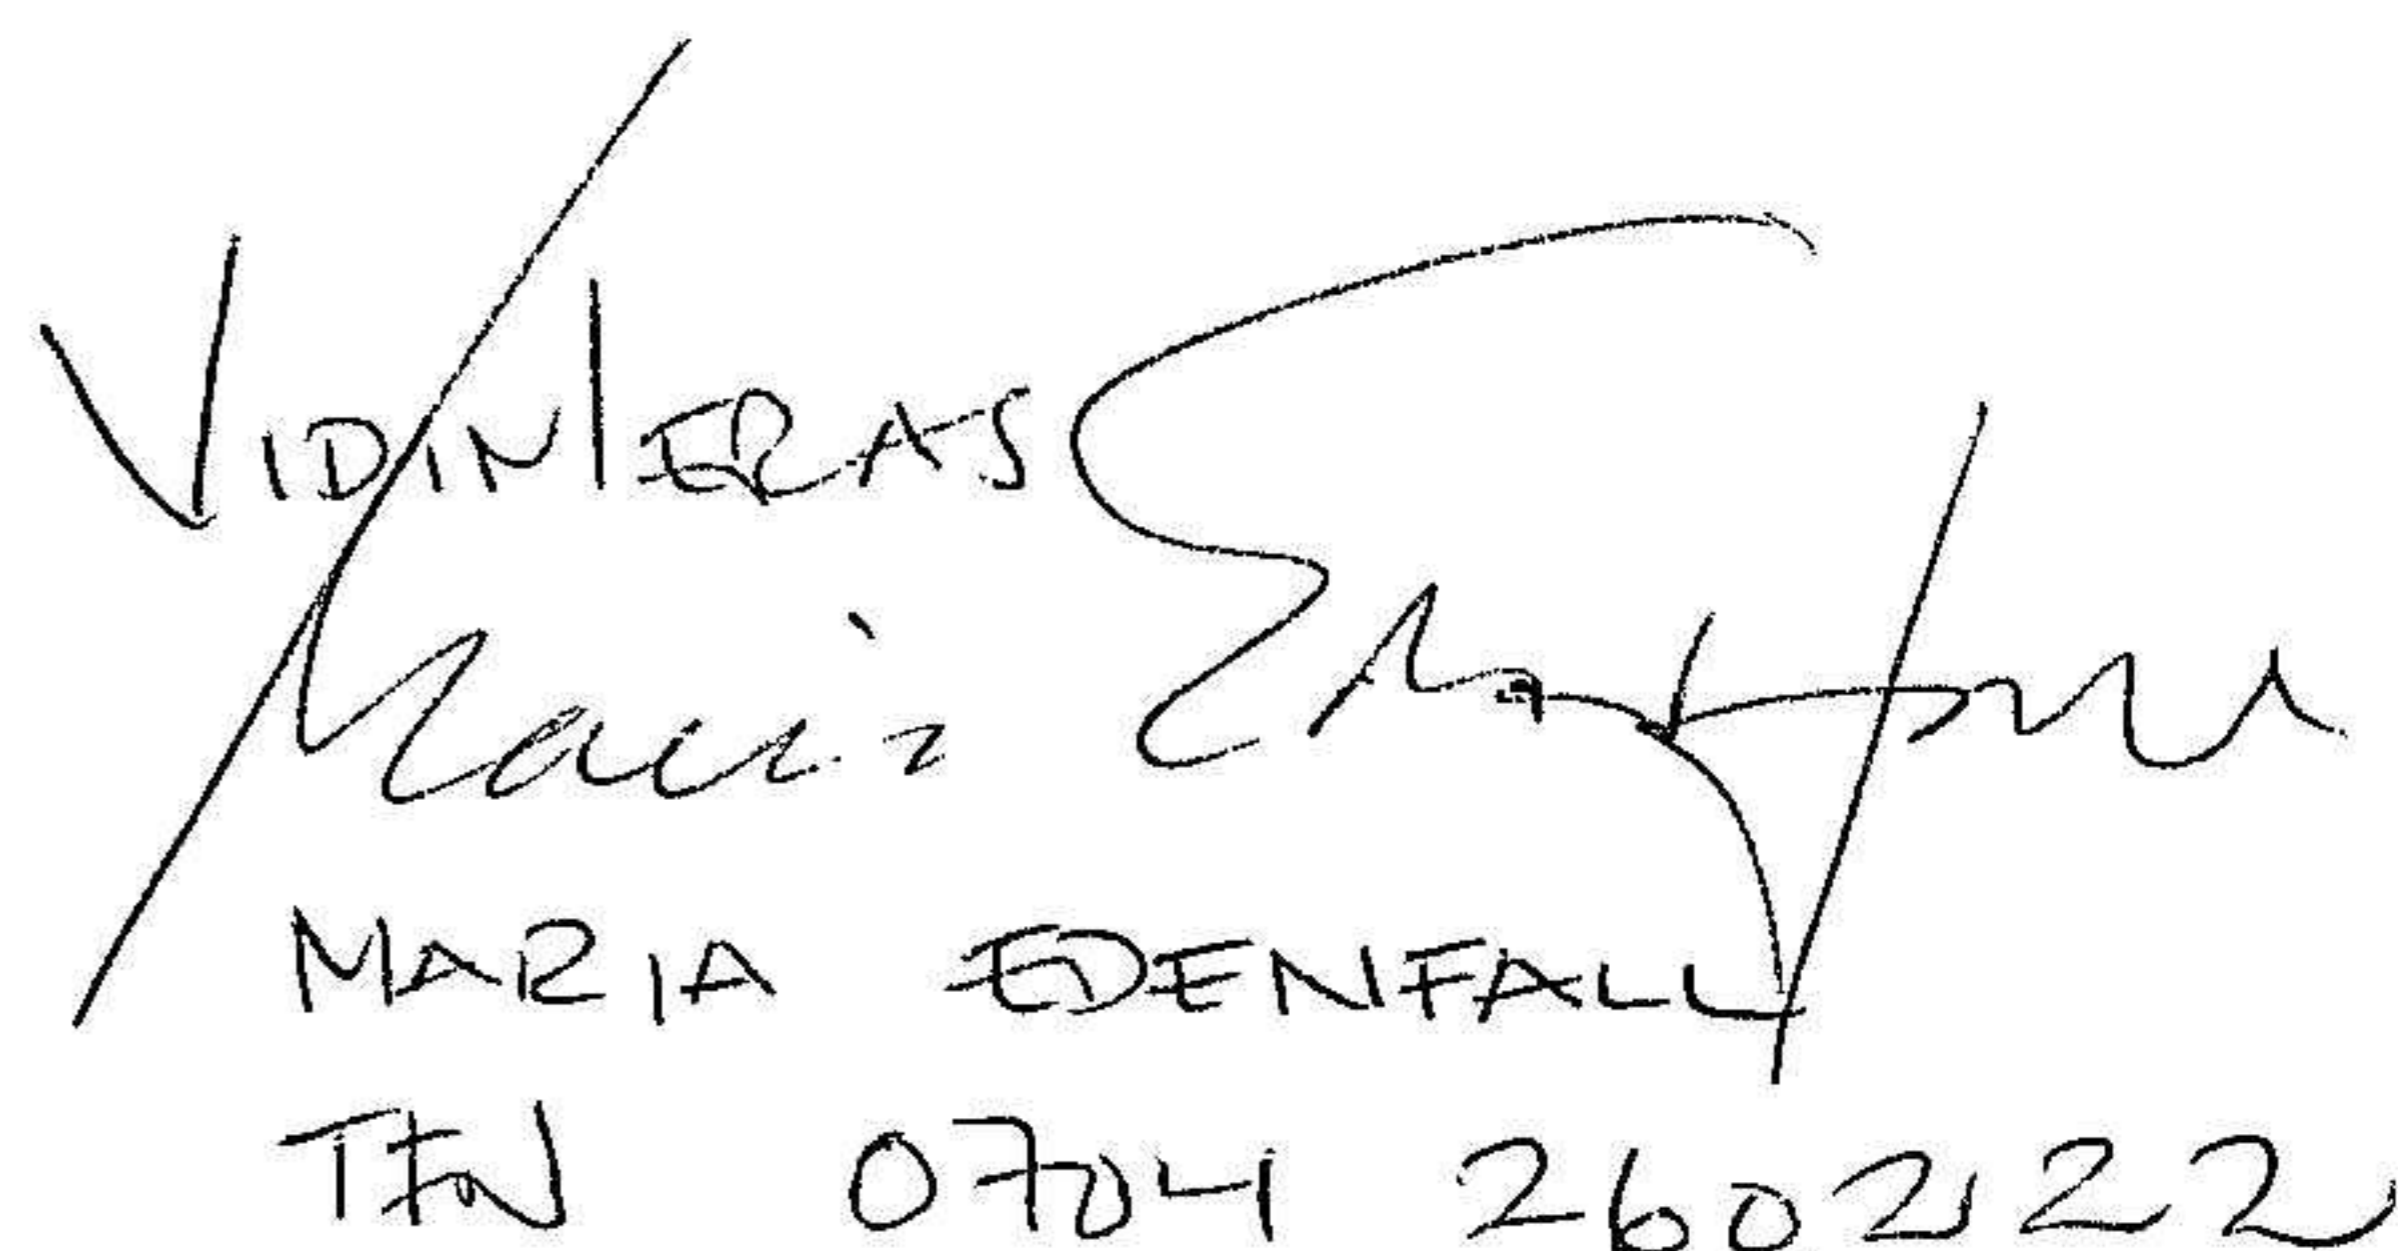 VIDIMERAS
Maria Edenfall
MARIA EDENFALL
TFN 0704 260222